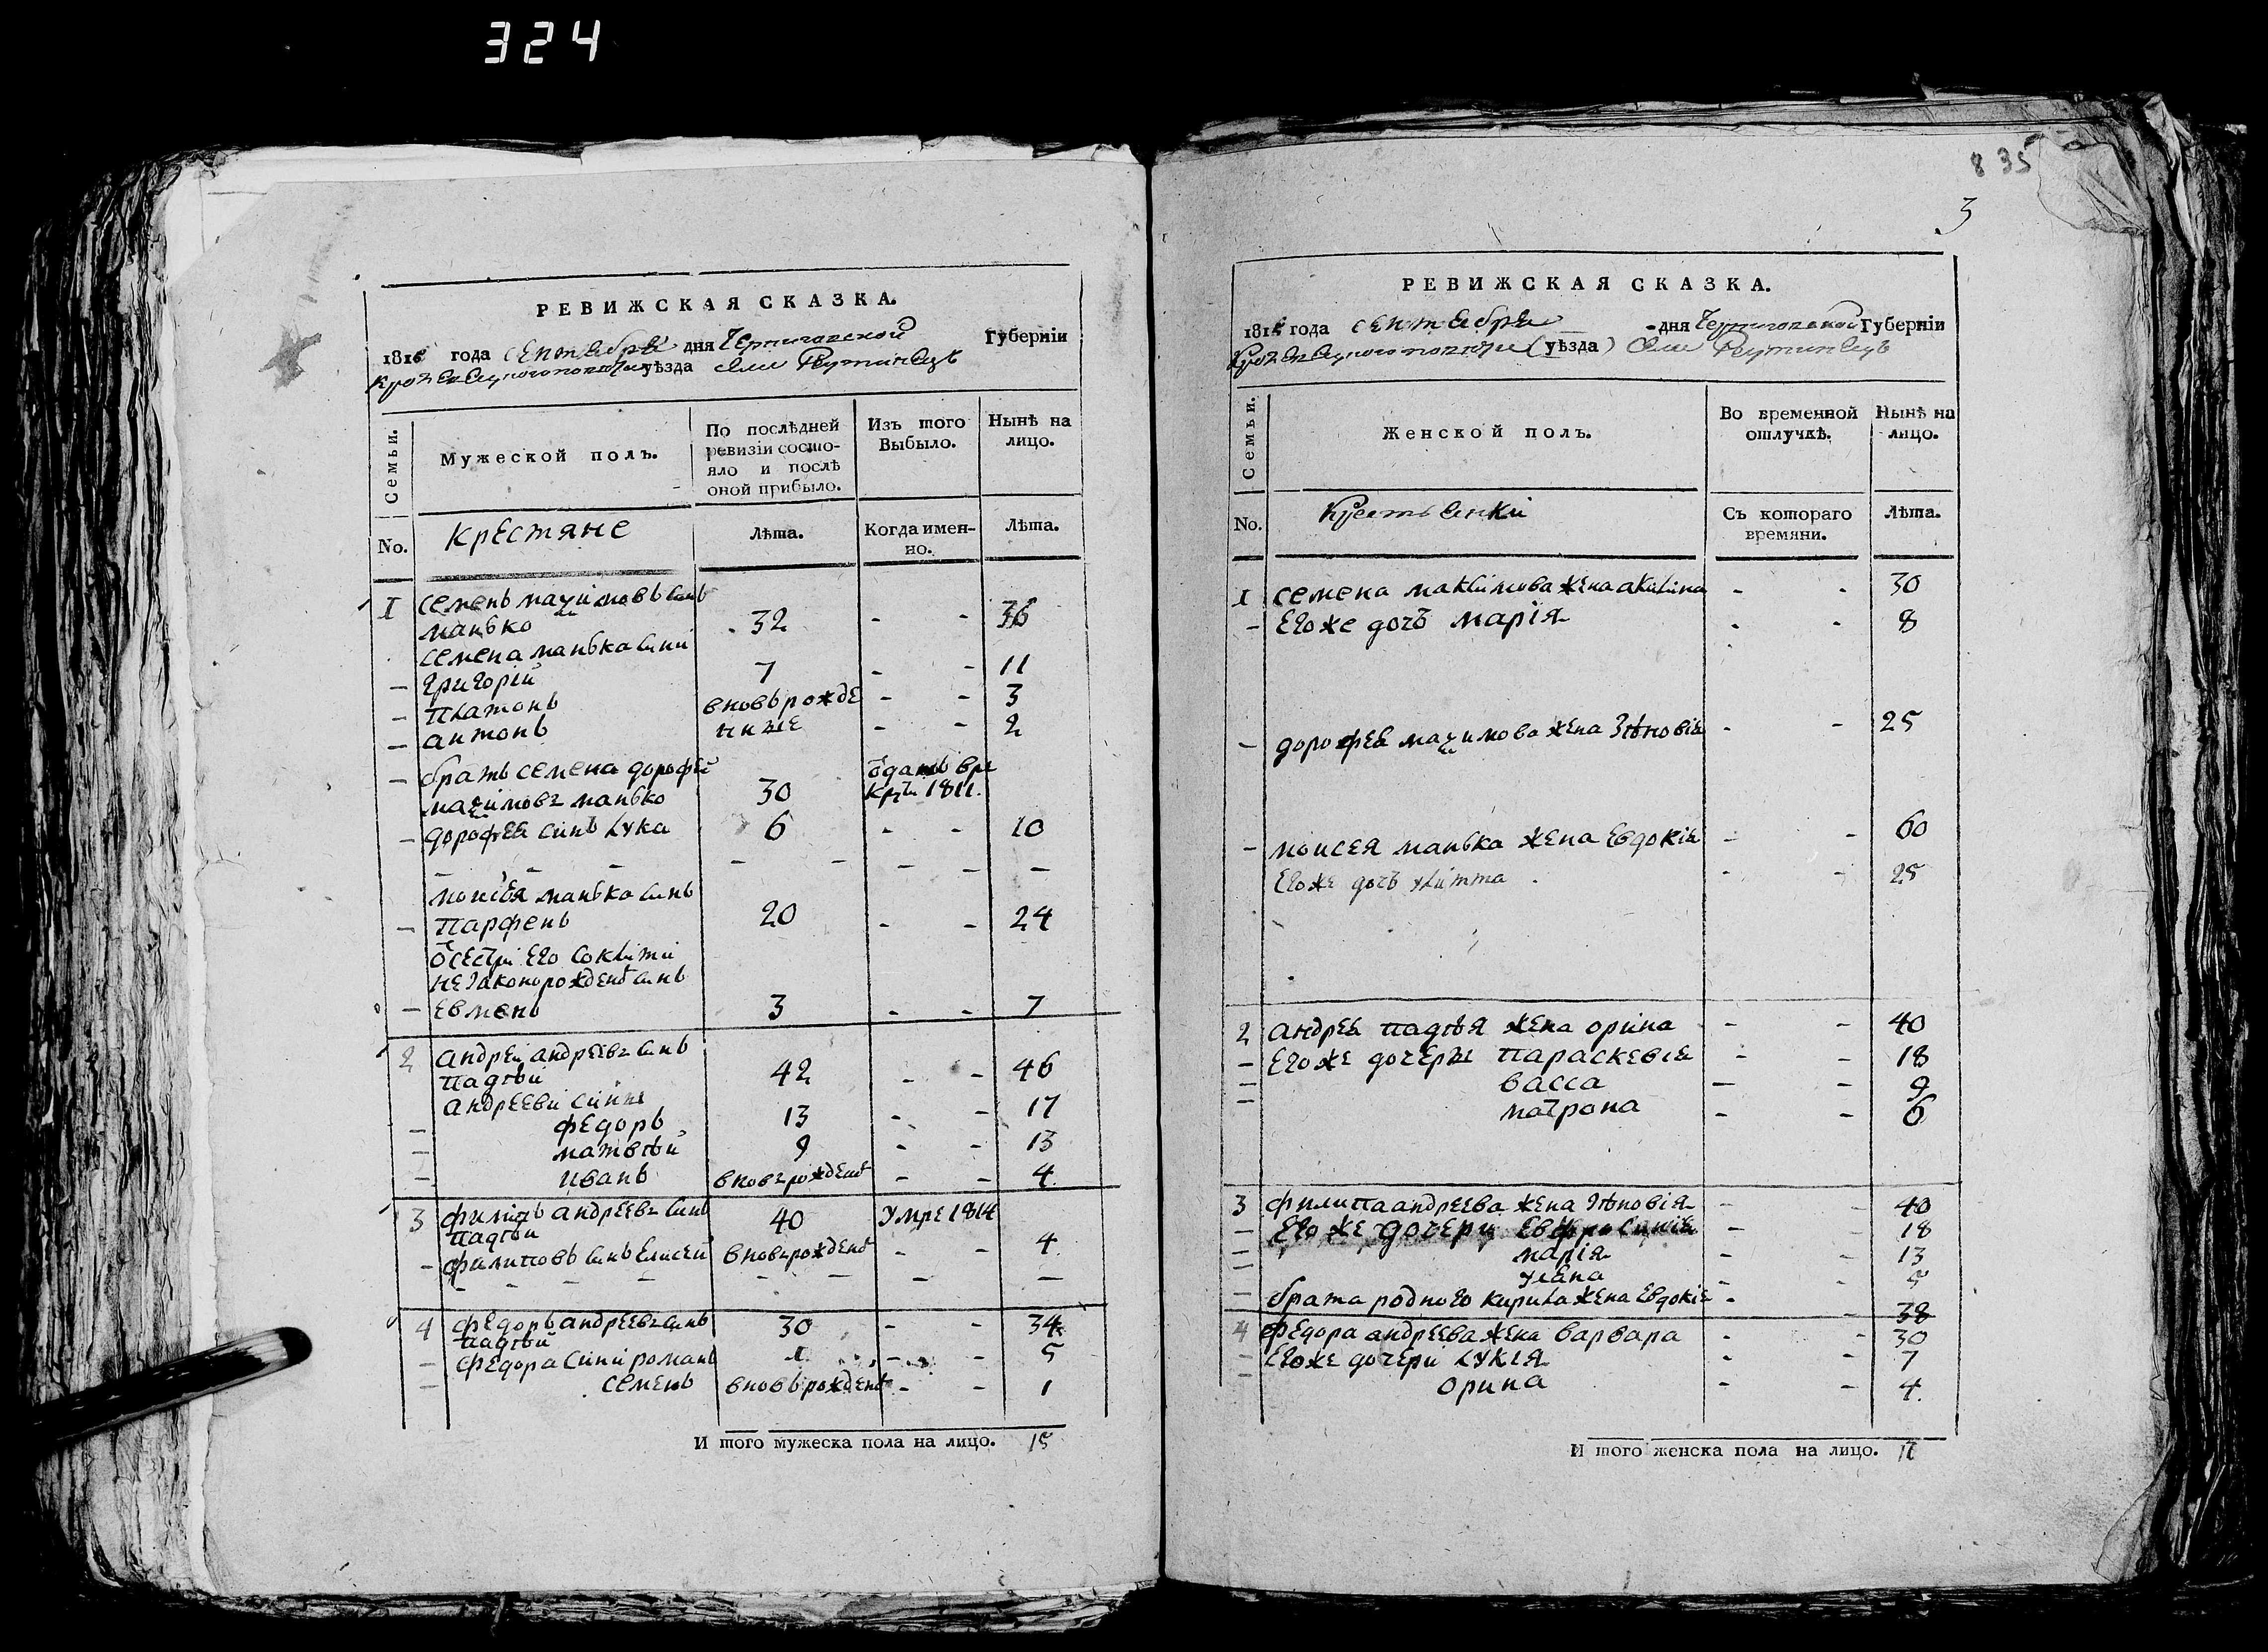 324
РЕВИЖСКАЯ СКАЗКА.
181 года сентября дня Черниговской Губерніи
Кролевецкого повѣта уѣзда Села Реутинецъ
Семьи.
Мужеской полъ.
По послѣдней ревизіи состо-
яло и послѣ
оной прибыло.
Изъ того
Выбыло.
Нынѣ на
лицо.
No.
крестяне
Лѣта.
Когда имен-
но.
Лѣта.
1 семенъ максимовъ синъ
манько 32 - - 36
семена манька сини
- григорій 7 - - 11
- платонъ вновь рожде - - 3
- антонъ нние - - 2
- братъ семена дорофей
максимовъ манько 30 1811.
- дорофея синъ лука 6 - - 10
- - - - - - - -
моисея манька синъ
- парфенъ 20 - - 24
сестри его
незаконорожденъ синъ
- евменъ 3 - - 7
2 андрей андреевъ синъ
падѣй 42 - - 46
андрееви сини
- федоръ 13 - - 17
- матвѣй 9 - - 13
- иванъ вновъ рожденъ - - 4
3 филипъ андреевъ синъ 40 умре 1814
падѣй
- филиповъ синъ елисей вновъ рожденъ - - 4
- - - - - - -
4 федоръ андреевъ синъ 30 - - 34
падѣй
- федора сини романъ 1 - - 5
- семенъ вновь рожденъ - - 1
И того мужеска пола на лицо. 15
835
3
РЕВИЖСКАЯ СКАЗКА.
181 года сентября - дня Черниговской Губерніи
Кролевецкого повѣта (уѣзда) Села Реутинецъ
Семьи.
Женской полъ.
Во временной
отлучкѣ.
Нынѣ на
лицо.
No.
Крестьянки
Съ котораго
времяни.
Лѣта.
1 семена максимова жена акилина - - 30
- егоже дочъ марія - - 8
- дорофея максимова жена зѣновія - - 25
- моисея манька жена евдокія - - 60
егоже дочъ улитта - - 25
2 андрея падѣя жена орина - - 40
- егоже дочери параскевія - - 18
- васса - - 9
- матрона - - 6
3 филипа андреева жена зѣновія - - 40
- его же дочери евфросинія - - 18
- марія - - 13
- уляна - - 5
- брата родного кирила жена евдокія - - 38
4 федора андреева жена варвара - - 30
- егоже дочери лукія - - 7
- орина - - 4
И того женска пола на лицо. 17